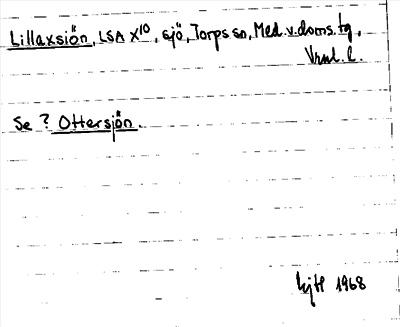 Lillaxsjön, LSA X10, sjö, Torps sn, Med. v. doms. tg,
Vrml. l.
Se ? Ottersjön.
1968